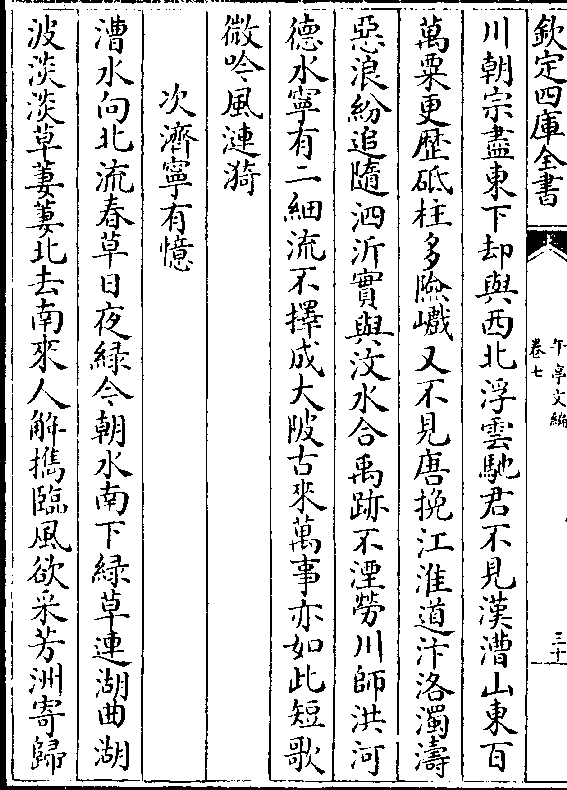 欽定四庫全書
午亭文編
卷七
三十
川朝宗盡東下却與西北浮雲馳君不見漢漕山東百
萬粟更歴砥柱多險巇又不見唐挽江淮道汴洛濁濤
惡浪紛追隨泗沂實與汶水合禹跡不湮勞川師洪河
德水寧有二細流不擇成大陂古來萬事亦如此短歌
微吟風漣漪
次濟寧有憶
漕水向北流春草日夜緑今朝水南下緑草連湖曲湖
波淡淡草萋萋北去南來人解擕臨風欲采芳洲寄歸